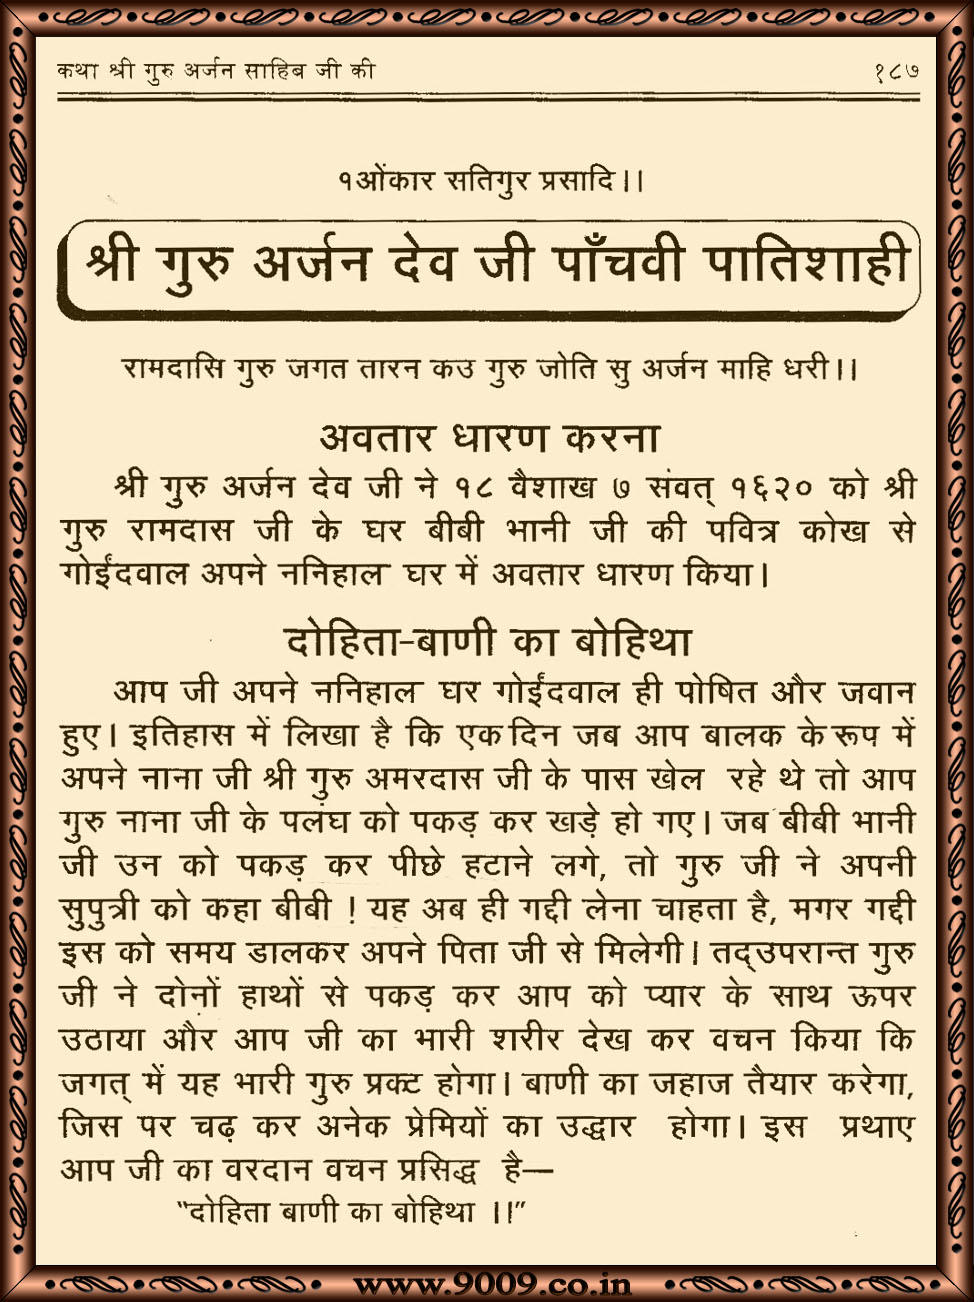 कथा श्री गुरु अर्जन साहिब जी की १८७
१ओंकार सतिगुर प्रसादि।।
श्री गुरु अर्जन देव जी पाँचवी पातिशाही
रामदासि गुरु जगत तारन कउ गुरु जोति सु अर्जन माहि धरी।।
अवतार धारण करना
श्री गुरु अर्जन देव जी ने १८ वैशाख ७ संवत् १६२० को श्री
गुरु रामदास जी के घर बीबी भानी जी की पवित्र कोख से
गोईंदवाल अपने ननिहाल घर में अवतार धारण किया।
दोहिता-बाणी का बोहिथा
आप जी अपने ननिहाल घर गोईंदवाल ही पोषित और जवान
हुए। इतिहास में लिखा है कि एक दिन जब आप बालक के रूप में
अपने नाना जी श्री गुरु अमरदास जी के पास खेल रहे थे तो आप
गुरु नाना जी के पलंघ को पकड़ कर खड़े हो गए। जब बीबी भानी
जी उन को पकड़ कर पीछे हटाने लगे, तो गुरु जी ने अपनी
सुपुत्री को कहा बीबी ! यह अब ही गद्दी लेना चाहता है, मगर गद्दी
इस को समय डालकर अपने पिता जी से मिलेगी। तद्उपरान्त गुरु
जी ने दोनों हाथों से पकड़ कर आप को प्यार के साथ ऊपर
उठाया और आप जी का भारी शरीर देख कर वचन किया कि
जगत् में यह भारी गुरु प्रक्ट होगा। बाणी का जहाज तैयार करेगा,
जिस पर चढ़ कर अनेक प्रेमियों का उद्धार होगा। इस प्रथाए
आप जी का वरदान वचन प्रसिद्ध है—
“दोहिता बाणी का बोहिथा ।।”
www.9009.co.in